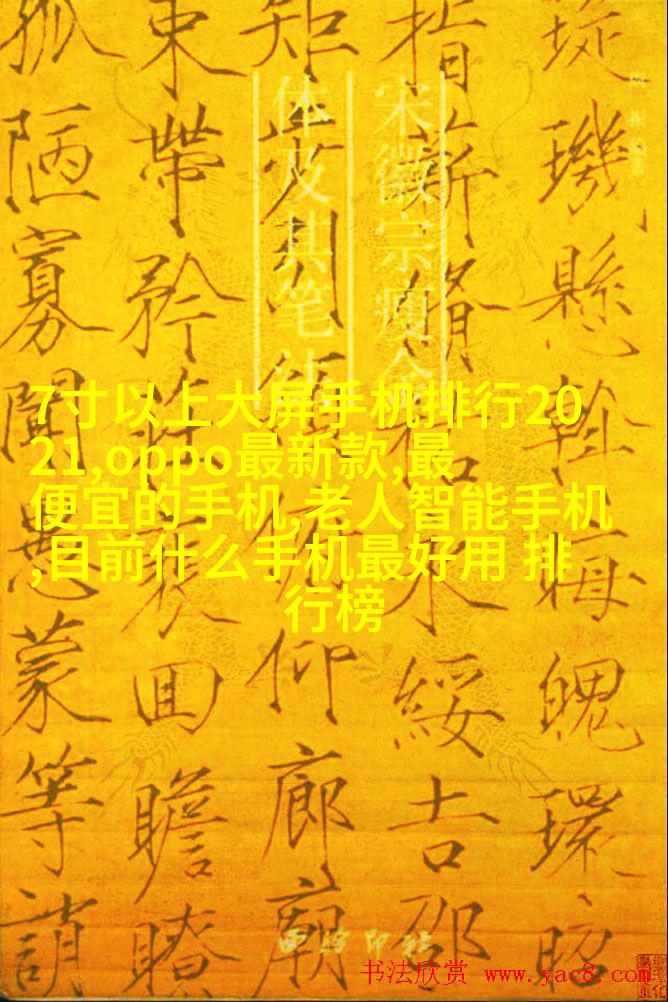 璇璣懸斡晦魄環照
指薪脩祜永綏吉邵
矩步引領俯仰廊廟
束帶矜莊裵回瞻眺
孤陋寡聞愚蒙等誚
宋徽宗瘦金
体及其笔法
7寸以上大屏手机排行20
21,oppo最新款,最
便宜的手机,老人智能手机
,目前什么手机最好用 排
行榜
西泠印社
书法欣赏 www.yac8.com